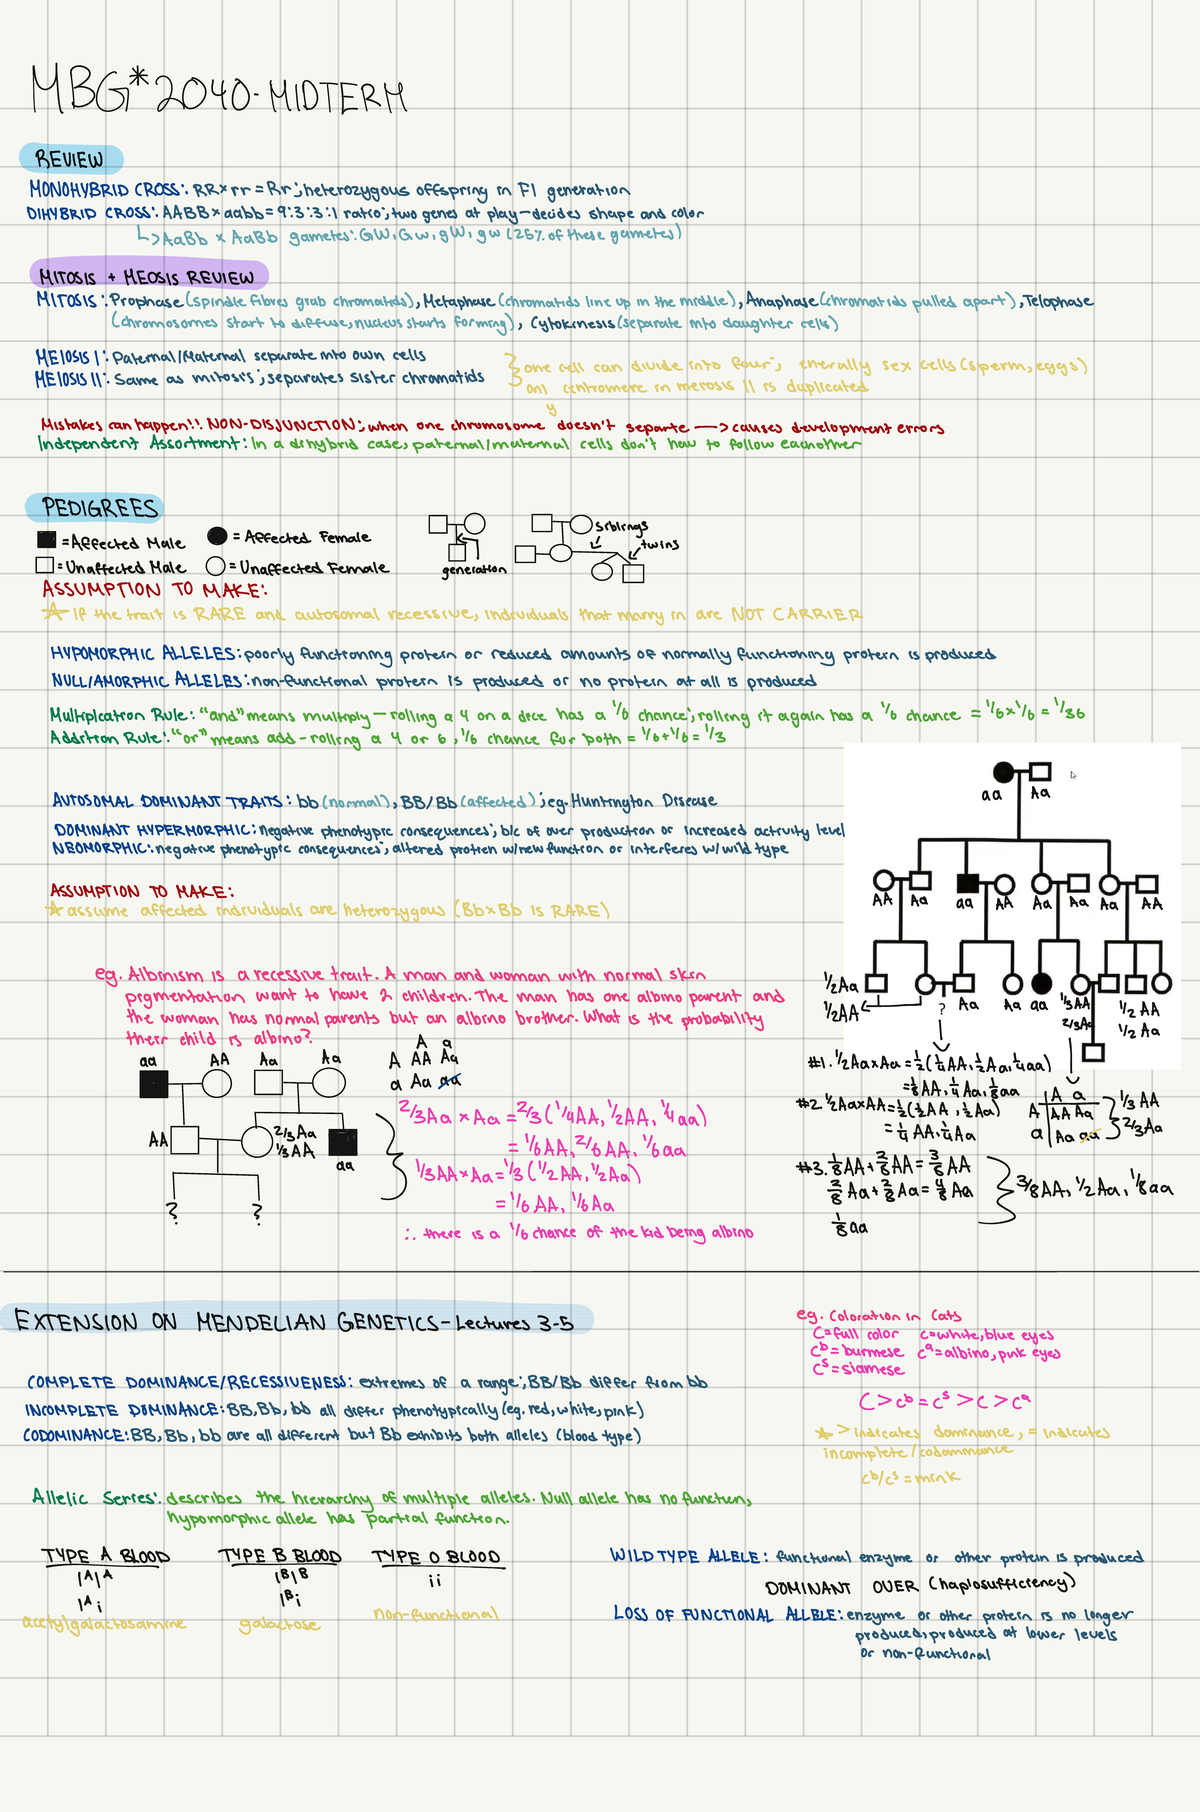 MBG*2040-MIDTERM
REVIEW
MONOHYBRID CROSS: RR x rr = Rr; heterozygous offspring in F1 generation
DIHYBRID CROSS: AABB x aabb = 9:3:3:1 ratio; two genes at play - decides shape and color
↳ AaBb x AaBb gametes: GW, Gw, gW, gw (25% of these gametes)
MITOSIS + MEOSIS REVIEW
MITOSIS: Prophase (spindle fibres grab chromatids), Metaphase (chromatids line up in the middle), Anaphase (chromatids pulled apart), Telophase
(chromosomes start to diffuse, nucleus starts forming), Cytokinesis (separate into daughter cells)
MEIOSIS I: Paternal/Maternal separate into own cells
MEIOSIS II: Same as mitosis; separates sister chromatids
one cell can divide into four; enerally sex cells (sperm, eggs)
onl centromere in meiosis II is duplicated
y
Mistakes can happen!! NON-DISJUNCTION: when one chromosome doesn't separte → causes development errors
Independent Assortment: In a dihybrid case, paternal/maternal cells don't haw to follow eachother
PEDIGREES
= Affected Male = Affected Female
= Unaffected Male = Unaffected Female
generation
siblings
twins
ASSUMPTION TO MAKE:
☆ If the trait is RARE and autosomal recessive, individuals that marry in are NOT CARRIER
HYPOMORPHIC ALLELES: poorly functioning protein or reduced amounts of normally functioning protein is produced
NULL/AMORPHIC ALLELES: non-functional protein is produced or no protein at all is produced
Multiplication Rule: "and" means multiply - rolling a 4 on a dice has a 1/6 chance; rolling it again has a 1/6 chance = 1/6 x 1/6 = 1/36
Addition Rule: "or" means add - rolling a 4 or 6, 1/6 chance for both = 1/6 + 1/6 = 1/3
AUTOSOMAL DOMINANT TRAITS: bb (normal), BB/Bb (affected); eg. Huntington Disease
DOMINANT HYPERMORPHIC: negative phenotypic consequences; b/c of over production or increased activity level
NEOMORPHIC: negative phenotypic consequences; altered protien w/new function or interferes w/ wild type
ASSUMPTION TO MAKE:
☆ assume affected individuals are heterozygous (Bb x Bb IS RARE)
aa Aa
AA Aa aa AA Aa Aa Aa AA
1/2 Aa
1/2 AA
? Aa Aa aa
1/3 AA
2/3 Aa
1/2 AA
1/2 Aa
eg. Albinism is a recessive trait. A man and woman with normal skin
pigmentation want to have 2 children. The man has one albino parent and
the woman has normal parents but an albino brother. What is the probability
their child is albino?
aa AA Aa Aa
AA
2/3 Aa
1/3 AA
aa
? ?
A a
A AA Aa
a Aa aa
2/3 Aa x Aa = 2/3 (1/4 AA, 1/2 AA, 1/4 aa)
= 1/6 AA, 2/6 AA, 1/6 aa
1/3 AA x Aa = 1/3 (1/2 AA, 1/2 Aa)
= 1/6 AA, 1/6 Aa
∴ there is a 1/6 chance of the kid being albino
#1. 1/2 Aa x Aa = 1/2 (1/4 AA, 1/2 Aa, 1/4 aa)
= 1/8 AA, 1/4 Aa, 1/8 aa
#2. 1/2 Aa x AA = 1/2 (1/2 AA, 1/2 Aa)
= 1/4 AA, 1/4 Aa
A a
A AA Aa
a Aa aa
1/3 AA
2/3 Aa
#3. 1/8 AA + 2/8 AA = 3/8 AA
2/8 Aa + 2/8 Aa = 4/8 Aa
1/8 aa
3/8 AA, 1/2 Aa, 1/8 aa
EXTENSION ON MENDELIAN GENETICS - Lectures 3-5
COMPLETE DOMINANCE/RECESSIVENESS: extremes of a range; BB/Bb differ from bb
INCOMPLETE DOMINANCE: BB, Bb, bb all differ phenotypically (eg. red, white, pink)
CODOMINANCE: BB, Bb, bb are all different but Bb exhibits both alleles (blood type)
eg. Coloration in Cats
C = full color c = white, blue eyes
cᵇ = burmese cᵃ = albino, pink eyes
cˢ = siamese
C > cᵇ = cˢ > c > cᵃ
☆ > indicates dominance, = indicates
incomplete/codominance
cᵇ/cˢ = mink
Allelic Series: describes the hierarchy of multiple alleles. Null allele has no function,
hypomorphic allele has partial function.
TYPE A BLOOD TYPE B BLOOD TYPE O BLOOD
IᴬIᴬ IᴮIᴮ ii
Iᴬi Iᴮi
acetylgalactosamine galactose non-functional
WILD TYPE ALLELE: functional enzyme or other protein is produced
DOMINANT OVER (haplosufficiency)
LOSS OF FUNCTIONAL ALLELE: enzyme or other protein is no longer
produced, produced at lower levels
or non-functional